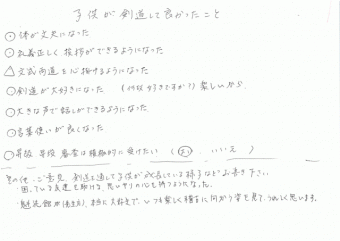 子供が剣道して良かったこと
○体が丈夫になった
○礼義正しく挨拶ができるようになった
△文武両道を心掛けるようになった
○剣道が大好きになった (何故好きですか?) 楽しいから
○大きな声で話しができるようになった
○言葉使いが良くなった
○昇級 昇段 審査は積極的に受けたい (はい いいえ)
その他、ご意見、剣道を通して子供が成長している様子などお書き下さい。
・困っている友達を助ける、思いやりの心を持つようになった。
・魅流館が(先生方)、本当に大好きで、いつも楽しく稽古に向かう姿を見て、うれしく思います。